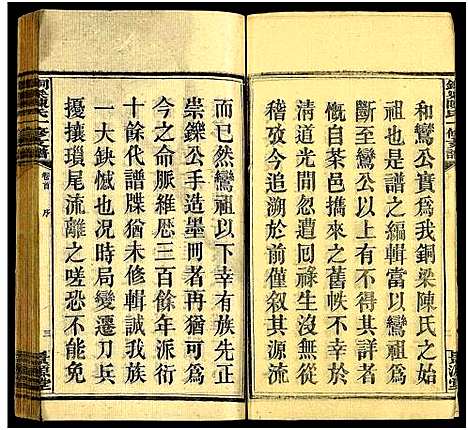 和鸞公實爲我銅梁陳氏之始
祖也是譜之編輯當以鸞公爲
至鸞公以上有不得其詳者
慨自茶邑攜來之舊帙不幸於
清道光間忽遭回祿生沒無
稽故今追溯於前僅叙其源流
而已然鸞祖以下幸有族先正
崇鑠公手造墨冊者再猶可爲
今之命脈維厯三百餘年派衍
十餘代譜牒猶未修輯誠我族
一大缺憾也况時局變遷刀兵
擾攘瑣尾流離之嗟恐不能免
卷首
序
三